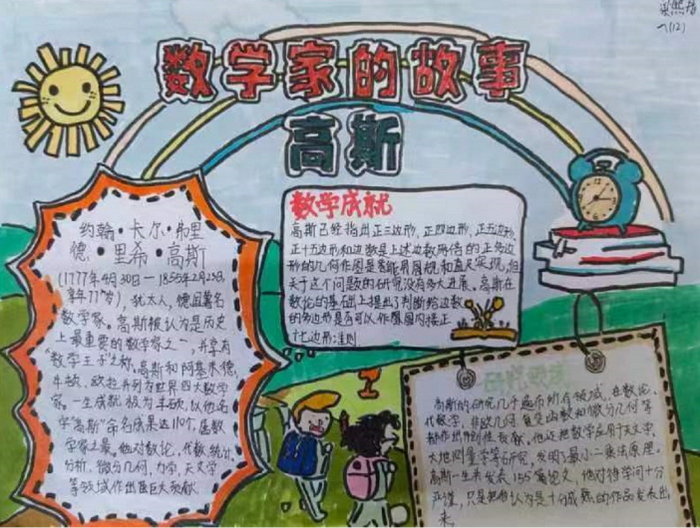 数学家的故事
高斯
一(12)
约翰·卡尔·弗里
德·里希·高斯
(1777年4月30日—1855年2月23日,
享年77岁),犹太人,德国著名
数学家。高斯被认为是历史
上最重要的数学家之一,并享有
"数学王子"之称。高斯和阿基米德、
牛顿、欧拉并列为世界四大数学
家。一生成就极为丰硕,以他名
字"高斯"命名成果达110个,属数
学家之最。他对数论、代数、统计、
分析、微分几何、力学、天文学
等领域作出巨大贡献。
数学成就
高斯已经指出正三边形,正四边形,正五边形,
正十五边形和边数是上述边数两倍的正多边
形的几何作图是能用圆规和直尺实现,但
关于这个问题的研究没有多大进展。高斯在
数论的基础上提出了判断给边数
的多边形是否可以作图
十七边形准则
研究领域
高斯的研究几乎遍布所有领域,在数论、
代数学、非欧几何、复变函数和微分几何等
都作出开创性贡献。他还把数学应用于天文学、
大地测量学等研究,发明了最小二乘法原理。
高斯一生共发表155篇论文,他对待学问十分
严谨,只是把他认为是十分成熟的作品发表出
来